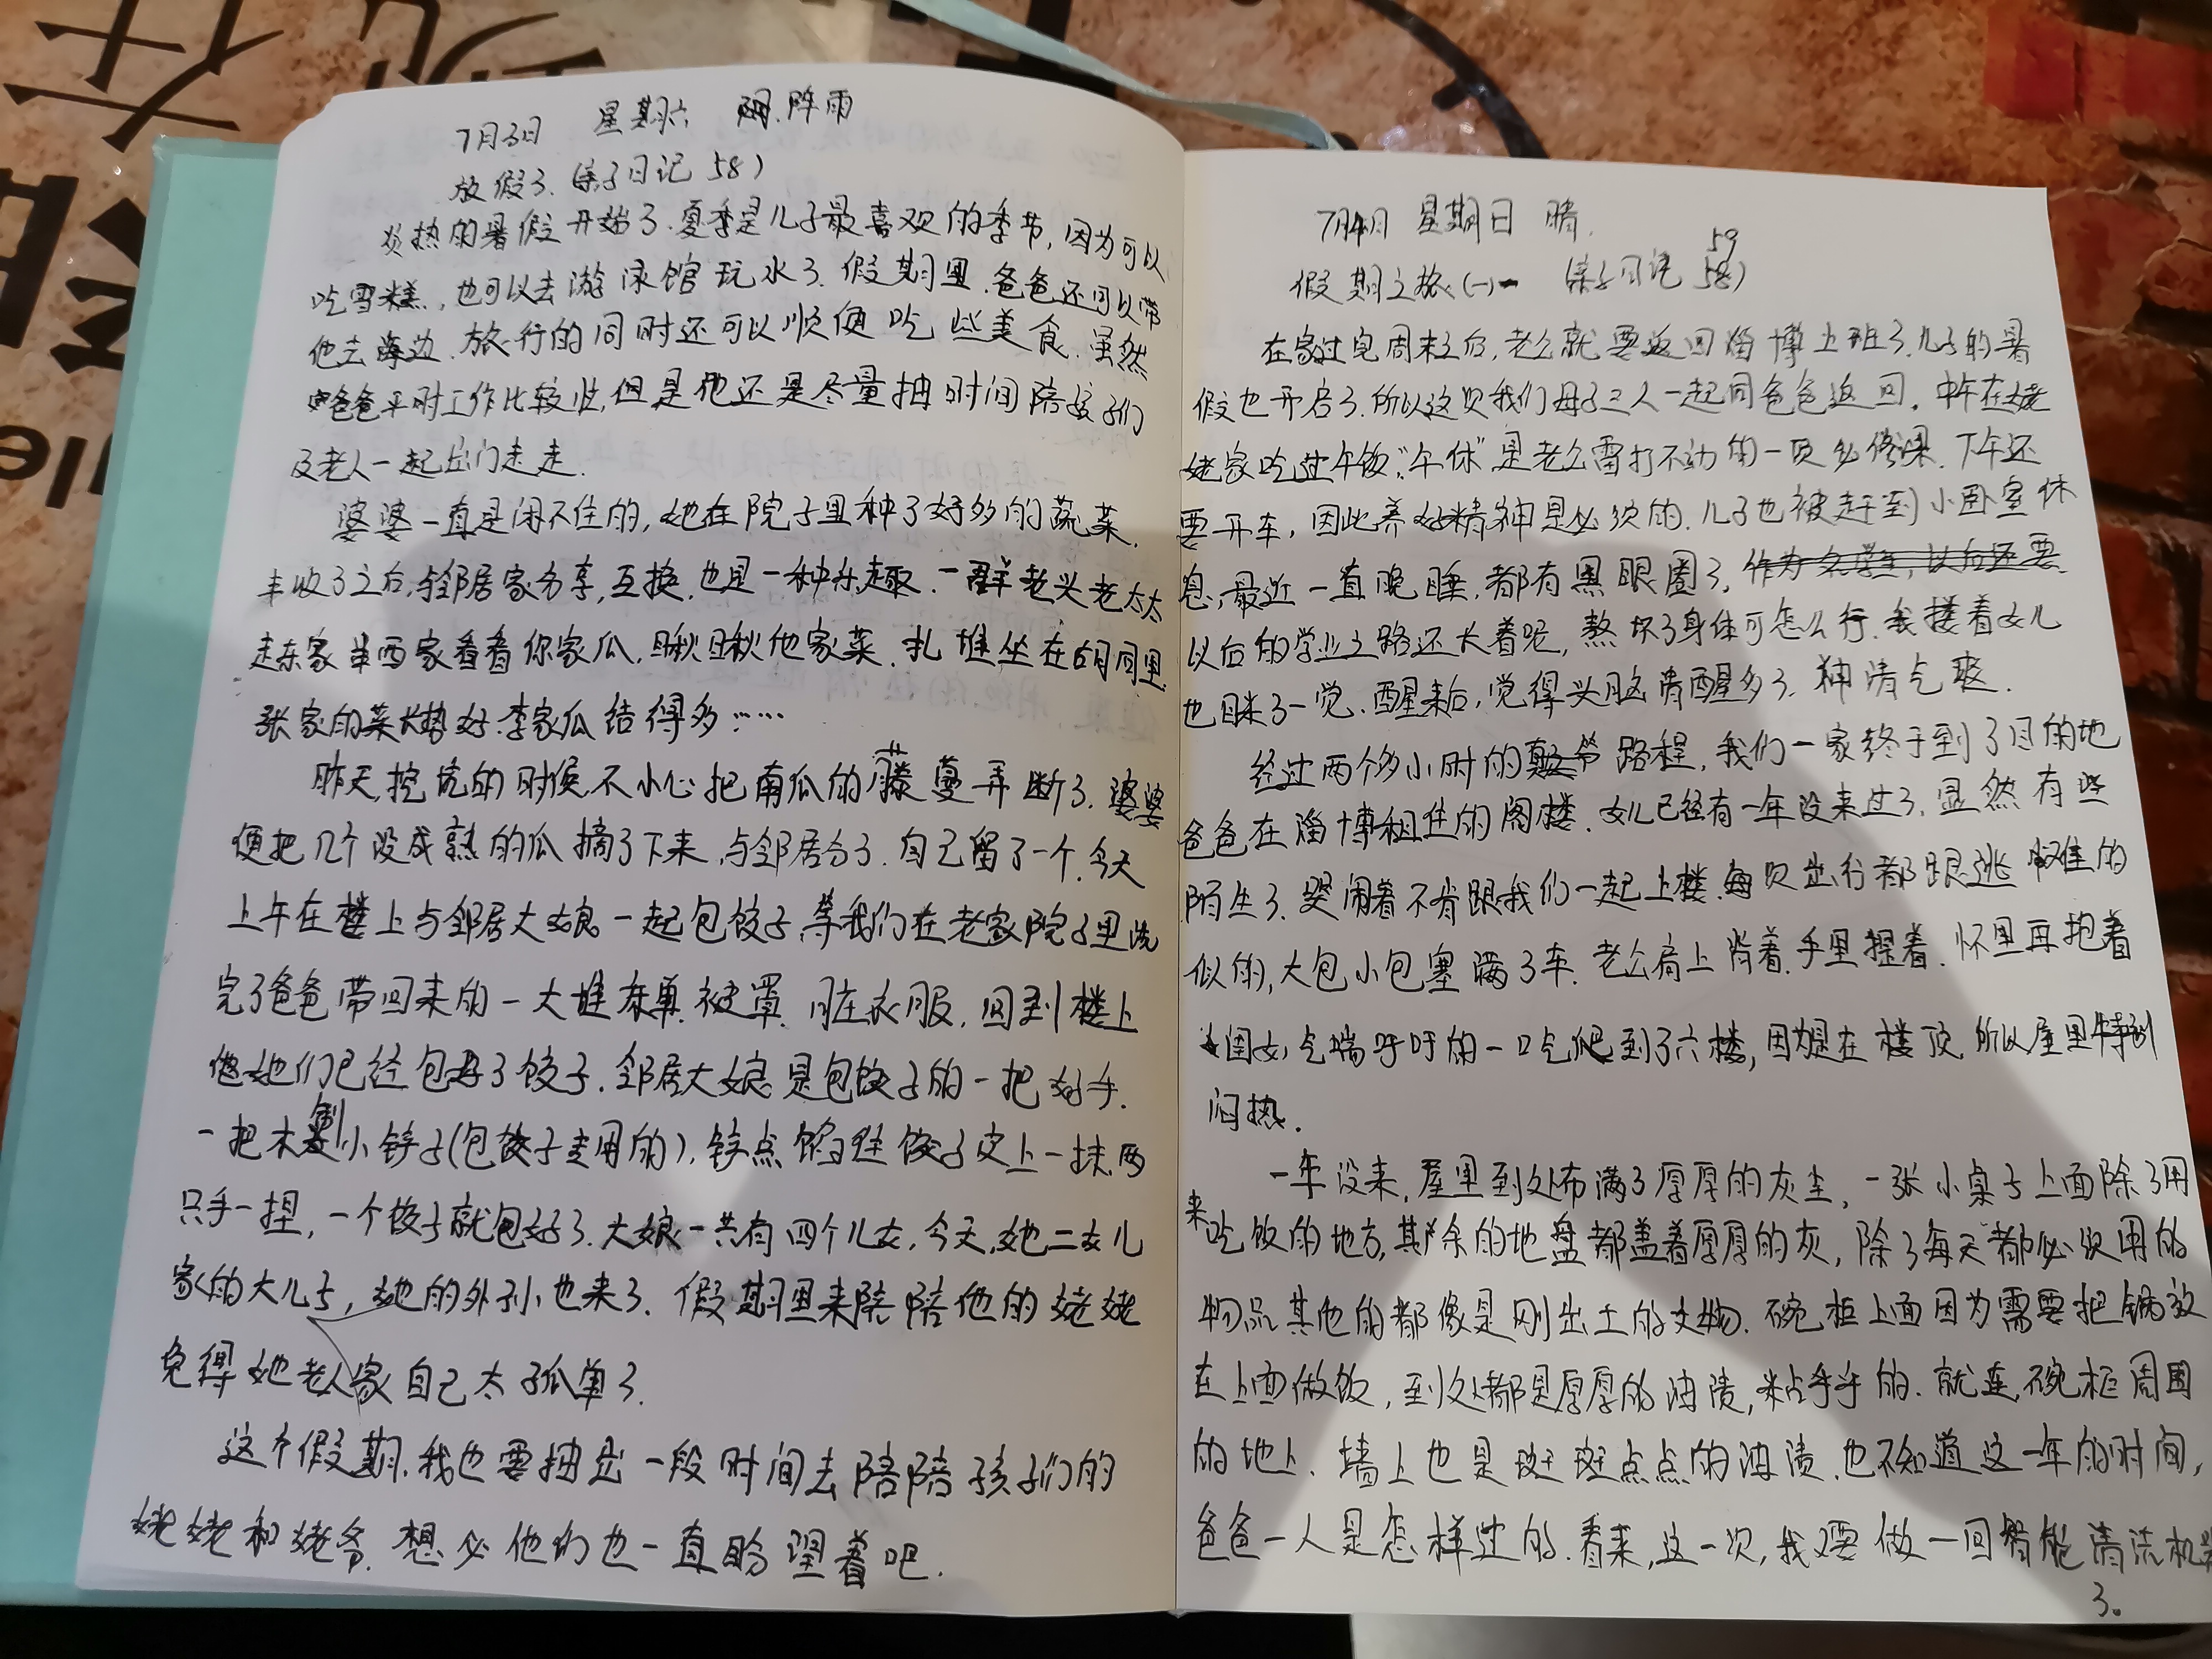 7月3日 星期六 阴.阵雨
放假了.(亲子日记 58)
炎热的暑假开始了.夏季是儿子最喜欢的季节,因为可以
吃雪糕,也可以去游泳馆玩水了.假期里.爸爸还可以带
他去海边.旅行的同时还可以顺便吃些美食.虽然
爸爸平时工作比较忙,但是他还是尽量抽时间陪孩子们
及老人一起出门走走.
婆婆一直是闲不住的,她在院子里种了好多的蔬菜.
丰收了之后,与邻居家分享,互换.也是一种乐趣.一群老头老太太
走东家串西家看看你家瓜,瞅瞅他家菜.扎堆坐在胡同里
张家的菜长势好.李家瓜结得多……
昨天,挖坑的时候不小心把南瓜的藤蔓弄断了.婆婆
便把几个没成熟的瓜摘了下来,与邻居分了.自己留了一个.今天
上午在楼上与邻居大娘一起包饺子,等我们在老家院子里洗
完了爸爸带回来的一大堆床单.被罩.脏衣服.回到楼上
她们已经包好了饺子.邻居大娘是包饺子的一把好手.
一把木制小铲子(包饺子专用的),铲点馅往饺子皮上一抹.两
只手一捏,一个饺子就包好了.大娘一共有四个儿女,今天,她二女儿
家的大儿子,她的外孙也来了.假期里来陪陪他的姥姥
免得她老人家自己太孤单了.
这个假期,我也要抽出一段时间去陪陪孩子们的
姥姥和姥爷.想必他们也一直盼望着吧.
7月4日 星期日 晴.
59
假期之旅(一) (亲子日记 58)
在家过完周末之后,老公就要返回淄博上班了.儿子的暑
假也开启了.所以这次我们母子三人一起同爸爸返回.中午在姥
姥家吃过午饭,"午休"是老公雷打不动的一项必修课.下午还
要开车,因此养好精神是必须的.儿子也被赶到小卧室休
息,最近一直晚睡.都有黑眼圈了,作为
以后的学业之路还长着呢,熬坏了身体可怎么行.我搂着女儿
也眯了一觉.醒来后,觉得头脑清醒多了.神清气爽.
经过两个多小时的颠簸路程,我们一家终于到了目的地
爸爸在淄博租住的阁楼.女儿已经有一年没来过了.显然有些
陌生了.哭闹着不肯跟我们一起上楼.每次出行都跟逃难的
似的,大包小包塞满了车.老公肩上背着.手里提着.怀里再抱着
闺女,气喘吁吁的一口气爬到了六楼,因为是在楼顶.所以屋里特别
闷热.
一年没来,屋里到处布满了厚厚的灰尘,一张小桌子上面除了用
来吃饭的地方,其余的地盘都盖着厚厚的灰,除了每天都必须用的
物品其他的都像是刚出土的文物.碗柜上面因为需要把锅放
在上面做饭,到处都是厚厚的油渍,粘手手的.就连,碗柜周围
的地上.墙上也是斑斑点点的油渍.也不知道这一年的时间,
爸爸一人是怎样过的.看来,这一次,我又要做一回智能清洗机器
了。